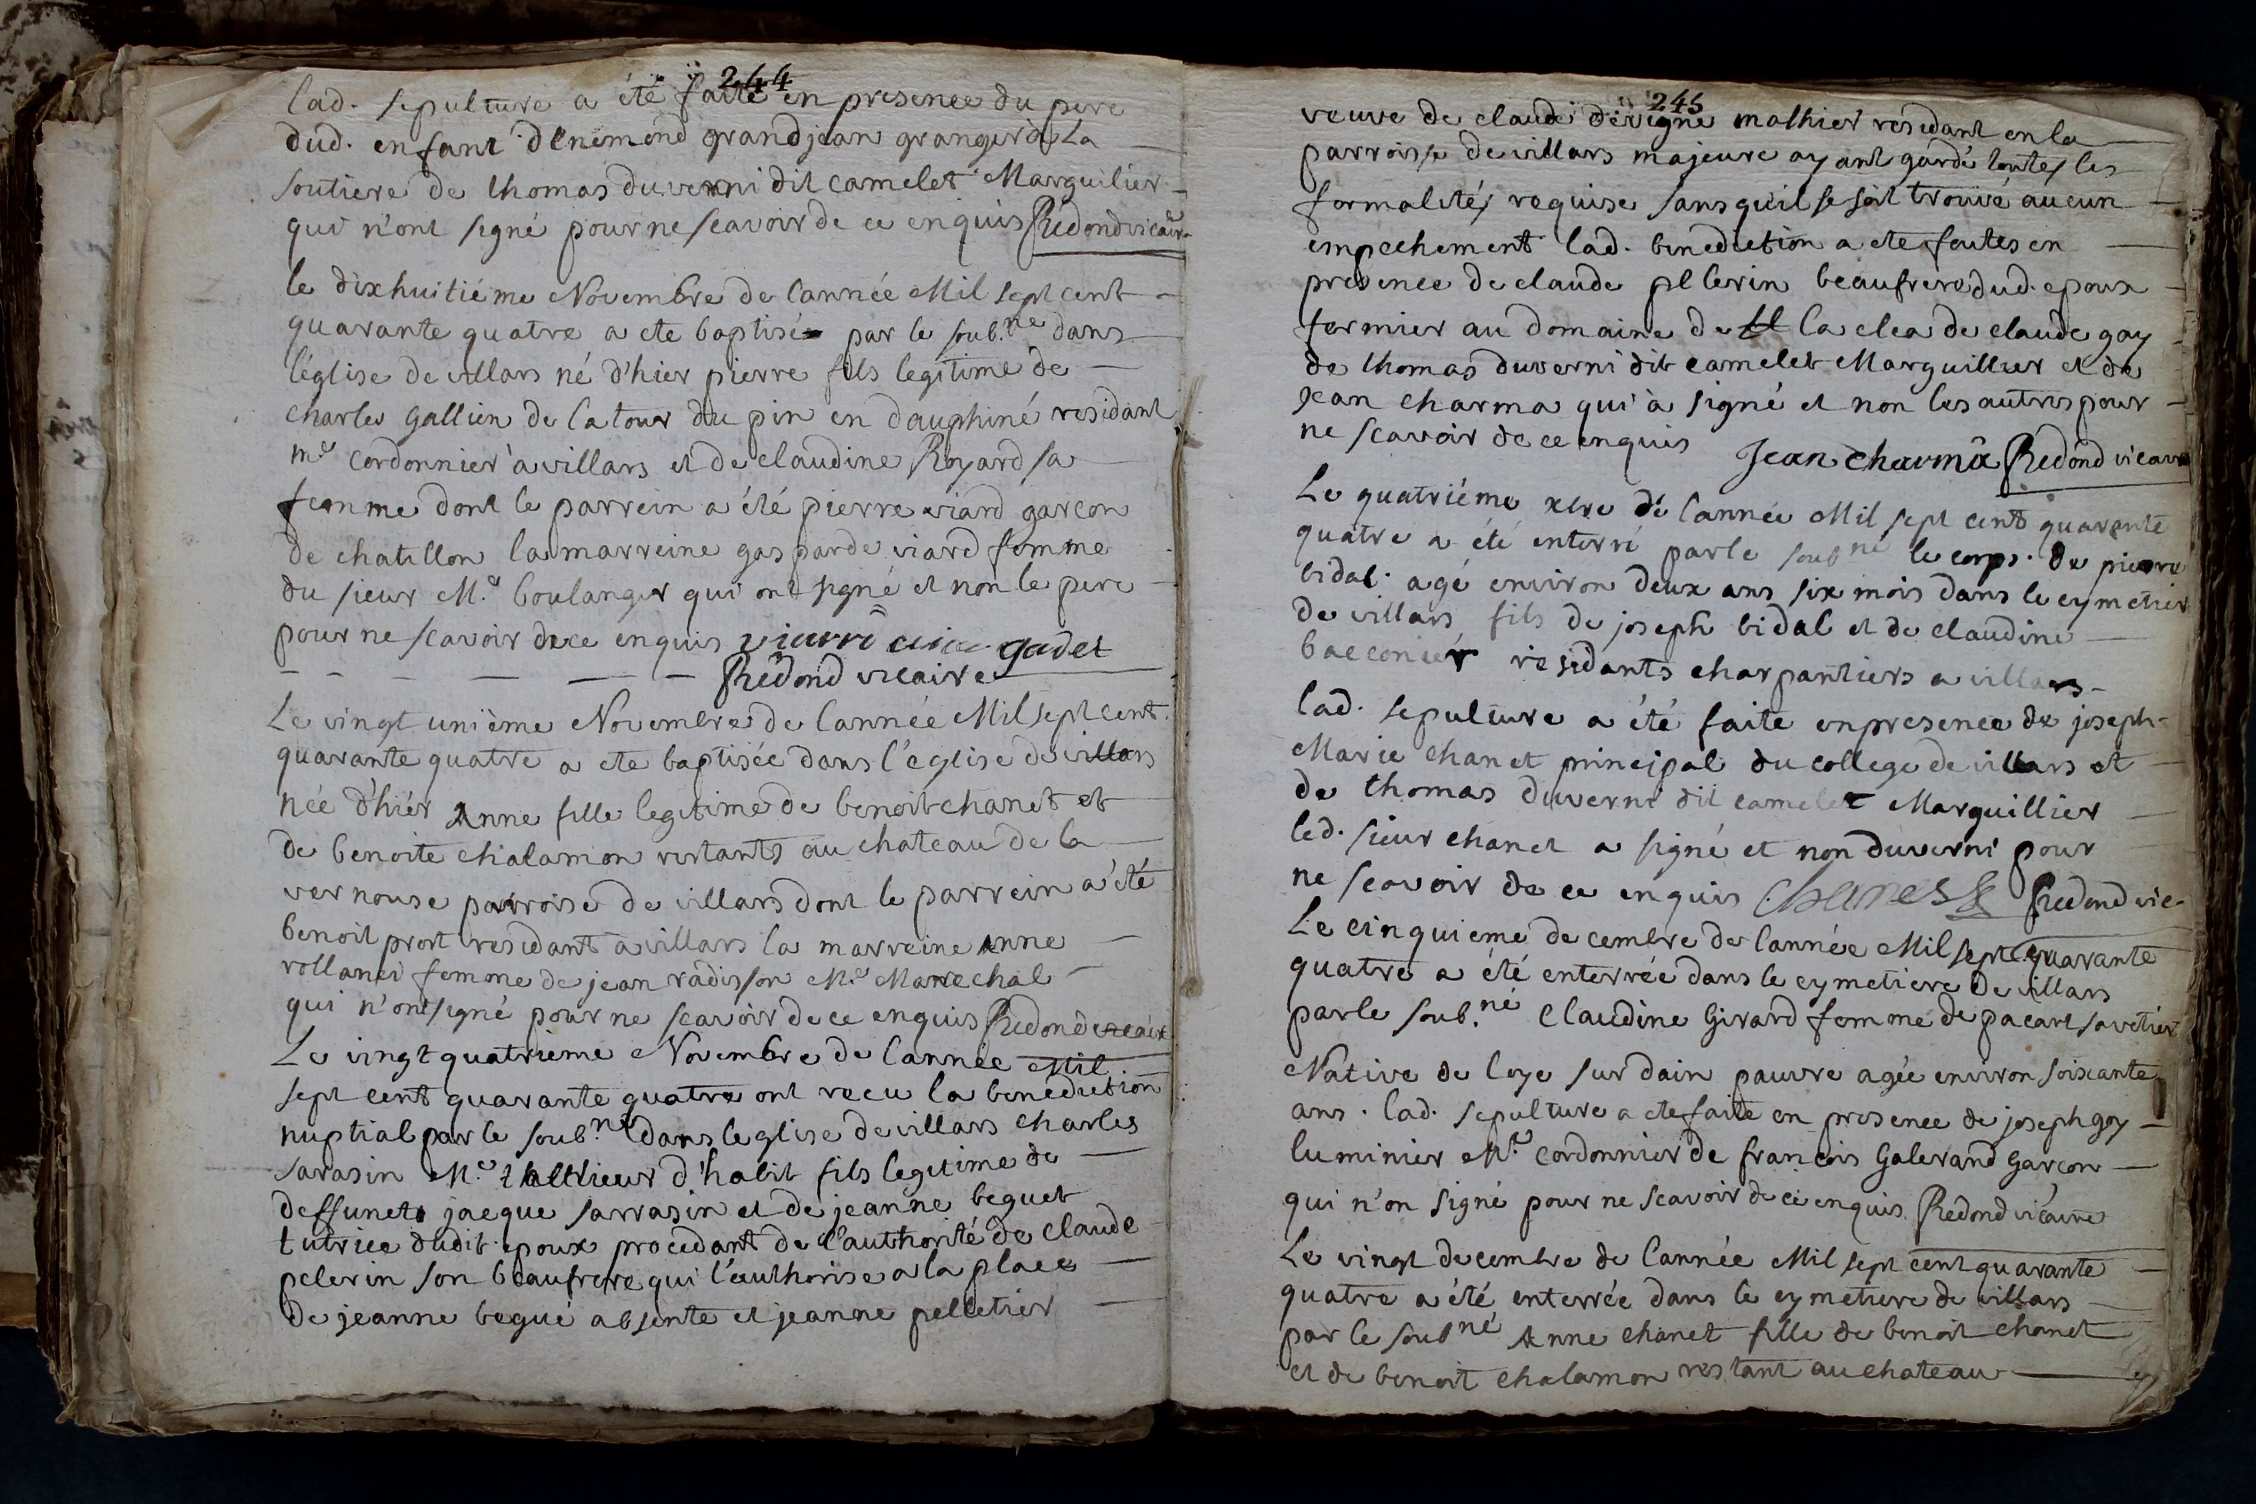 244
lad. sepulture a été faite en presence du pere
dud. enfant d'Enemond grandjean granger à La
soutiere de thomas duverni dit camelet Marguilier
qui n'ont signé pour ne scavoir de ce enquis Rédond vicaire
le dixhuitiéme Novembre de l'année Mil sept cent
quarante quatre a ete baptisé par le soub.né dans
l'église de villars né d'hier pierre fils legitime de
Charles gallien de la tour du pin en dauphiné residant
m.e cordonnier a villars et de claudine Royard sa
femme dont le parrein a été pierre viard garcon
de chatillon la marreine gasparde viard femme
du sieur M.e boulanger qui ont signé et non le pere
pour ne scavoir de ce enquis viard gadet
Rédond vicaire
Le vingt uniéme Novembre de l'année Mil sept cent
quarante quatre a ete baptisée dans l'église de villars
née d'hiér Anne fille legitime de benoit chanet et
de benoite chalamon restants au chateau de la
vernouse parroise de villars dont le parrein a été
benoit prost residant a villars la marreine anne
rollanci femme de jean radisson M.e Marechal
qui n'ont signé pour ne scavoir de ce enquis Redond vicaire
Le vingt quatrieme Novembre de l'année Mil
sept cent quarante quatre ont recu la benediction
nuptial par le soub.né dans leglise de villars charles
sarasin M.e tallieur d'habit fils legitime de
deffunets jacque sarrasin et de jeanne beguet
tutrice dudit epoux procedant de l'authorité de claude
pelerin son beaufrere qui l'authorise a la place
de jeanne begué absente et jeanne pelletier
245
veuve de claude devigne mathier residant en la
parroisse de villars majeure ayant gardé toutes les
formalités requise sans qu'il se soit trouvé aucun
empechement lad. benediction a ete faites en
presence de claude pelerin beaufrere dud. epoux
fermier au domaine de la clea de claude gay
de thomas duverni dit camelet Marguillier et de
Jean charma qui à signé et non les autres pour
ne scavoir de ce enquis Jean charma Redond vicaire
Le quatriéme xbre de l'année Mil sept cent quarante
quatre a été enterré par le soub né le corps de pierre
bidal agé environ deux ans six mois dans le cymetier
de villars fils de joseph bidal et de claudine
bacconier résidants charpantiers a villars
lad. sepulture a été faite en presence de joseph
Marie chanet principal du college de villars et
de thomas duverni dit camelet Marguillier
led. sieur chanet a signé et non duverni pour
ne scavoir de ce enquis Chanet Redond vic
Le cinquieme decembre de l'année Mil sept c. quarante
quatre a été enterrée dans le cymetiere de villars
par le soub.né Claudine Girard femme de pacart savetier
Native de loye sur dain pauvre agée environ soixante
ans. lad. sepulture a ete faite en presence de joseph goy
luminier M.e cordonnier de francois Galerand garcon
qui n'on signé pour ne scavoir de ce enquis Redond vicaire
Le vingt decembre de l'année Mil sept cent quarante
quatre a été enterrée dans le cymetiere de villars
par le soub né Anne chanet fille de benoit chanet
et de benoit chalamon restant au chateau